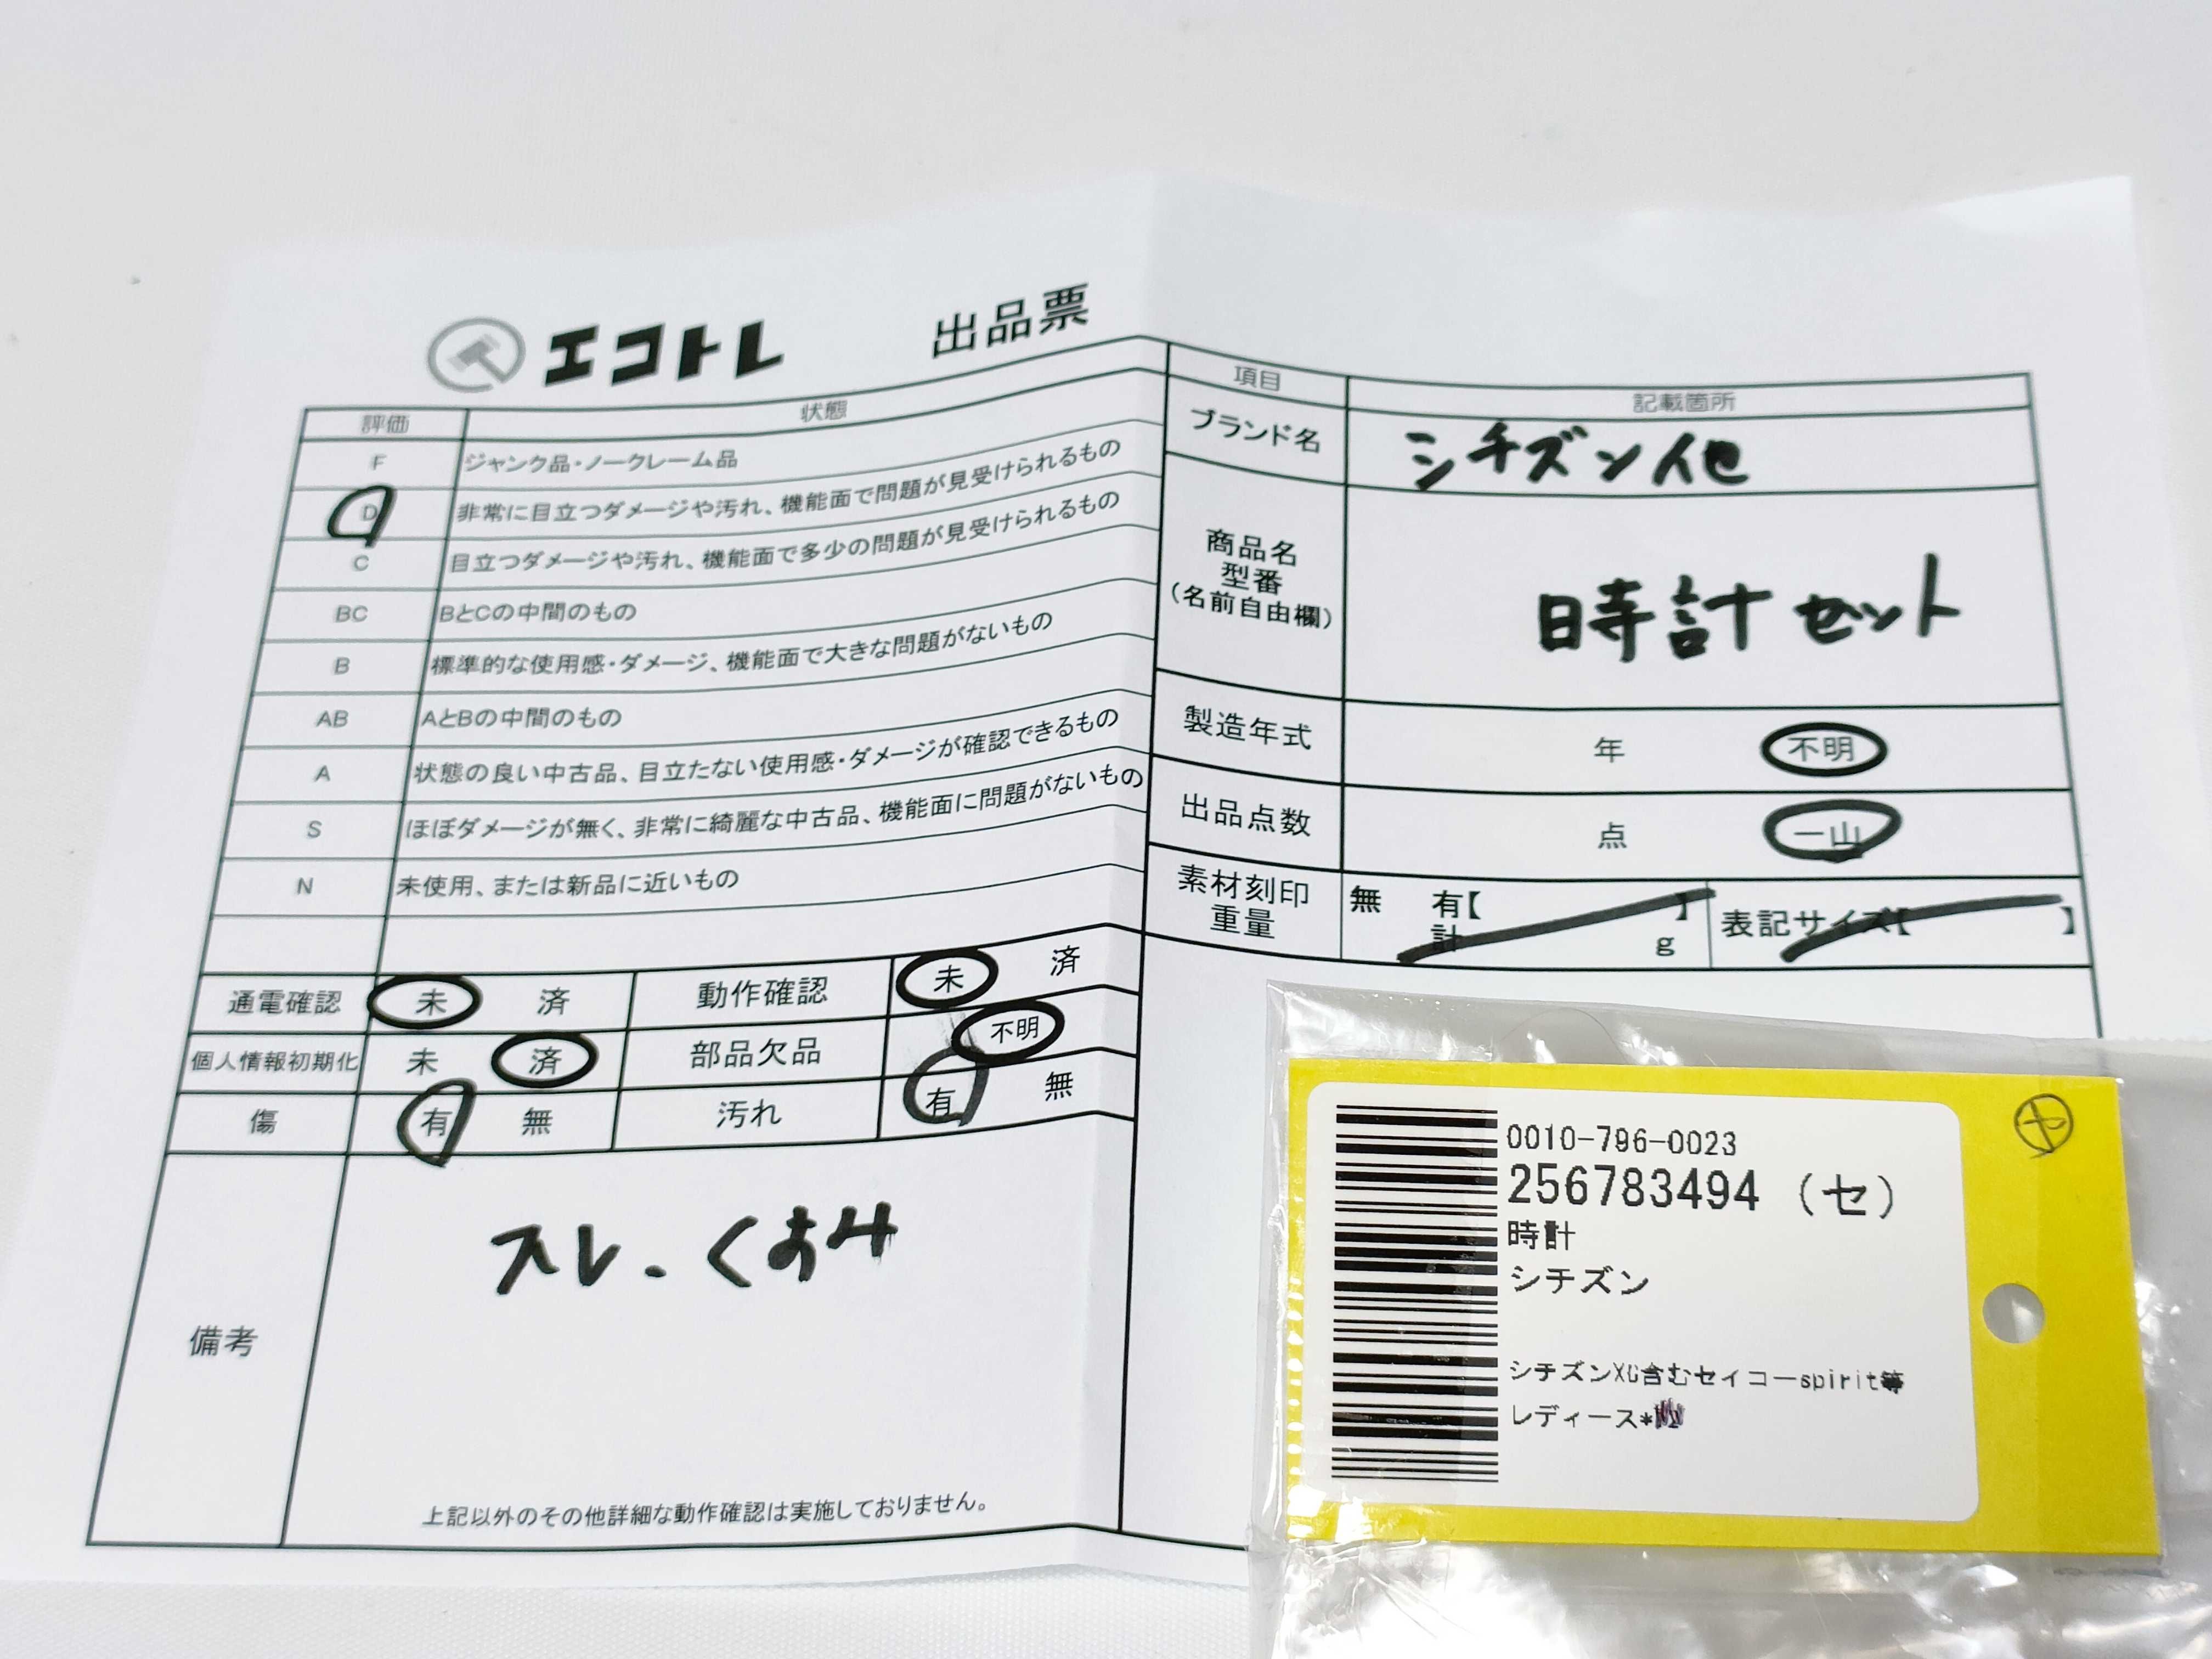 エコトレ 出品票
評価 状態
F ジャンク品・ノークレーム品
D 非常に目立つダメージや汚れ、機能面で問題が見受けられるもの
C 目立つダメージや汚れ、機能面で多少の問題が見受けられるもの
BC BとCの中間のもの
B 標準的な使用感・ダメージ、機能面で大きな問題がないもの
AB AとBの中間のもの
A 状態の良い中古品、目立たない使用感・ダメージが確認できるもの
S ほぼダメージが無く、非常に綺麗な中古品、機能面に問題がないもの
N 未使用、または新品に近いもの
通電確認 未 済 動作確認 未 済
個人情報初期化 未 済 部品欠品 不明
傷 有 無 汚れ 有 無
備考
スレ・くすみ
上記以外のその他詳細な動作確認は実施しておりません。
項目 記載箇所
ブランド名 シチズン他
商品名
型番
(名前自由欄)
時計セット
製造年式 年 不明
出品点数 点 一山
素材刻印
重量
無 有【 】
計 g
表記サイズ【 】
0010-796-0023
256783494 (セ)
時計
シチズン
シチズンXC含むセイコーspirit等
レディース*
ヤ